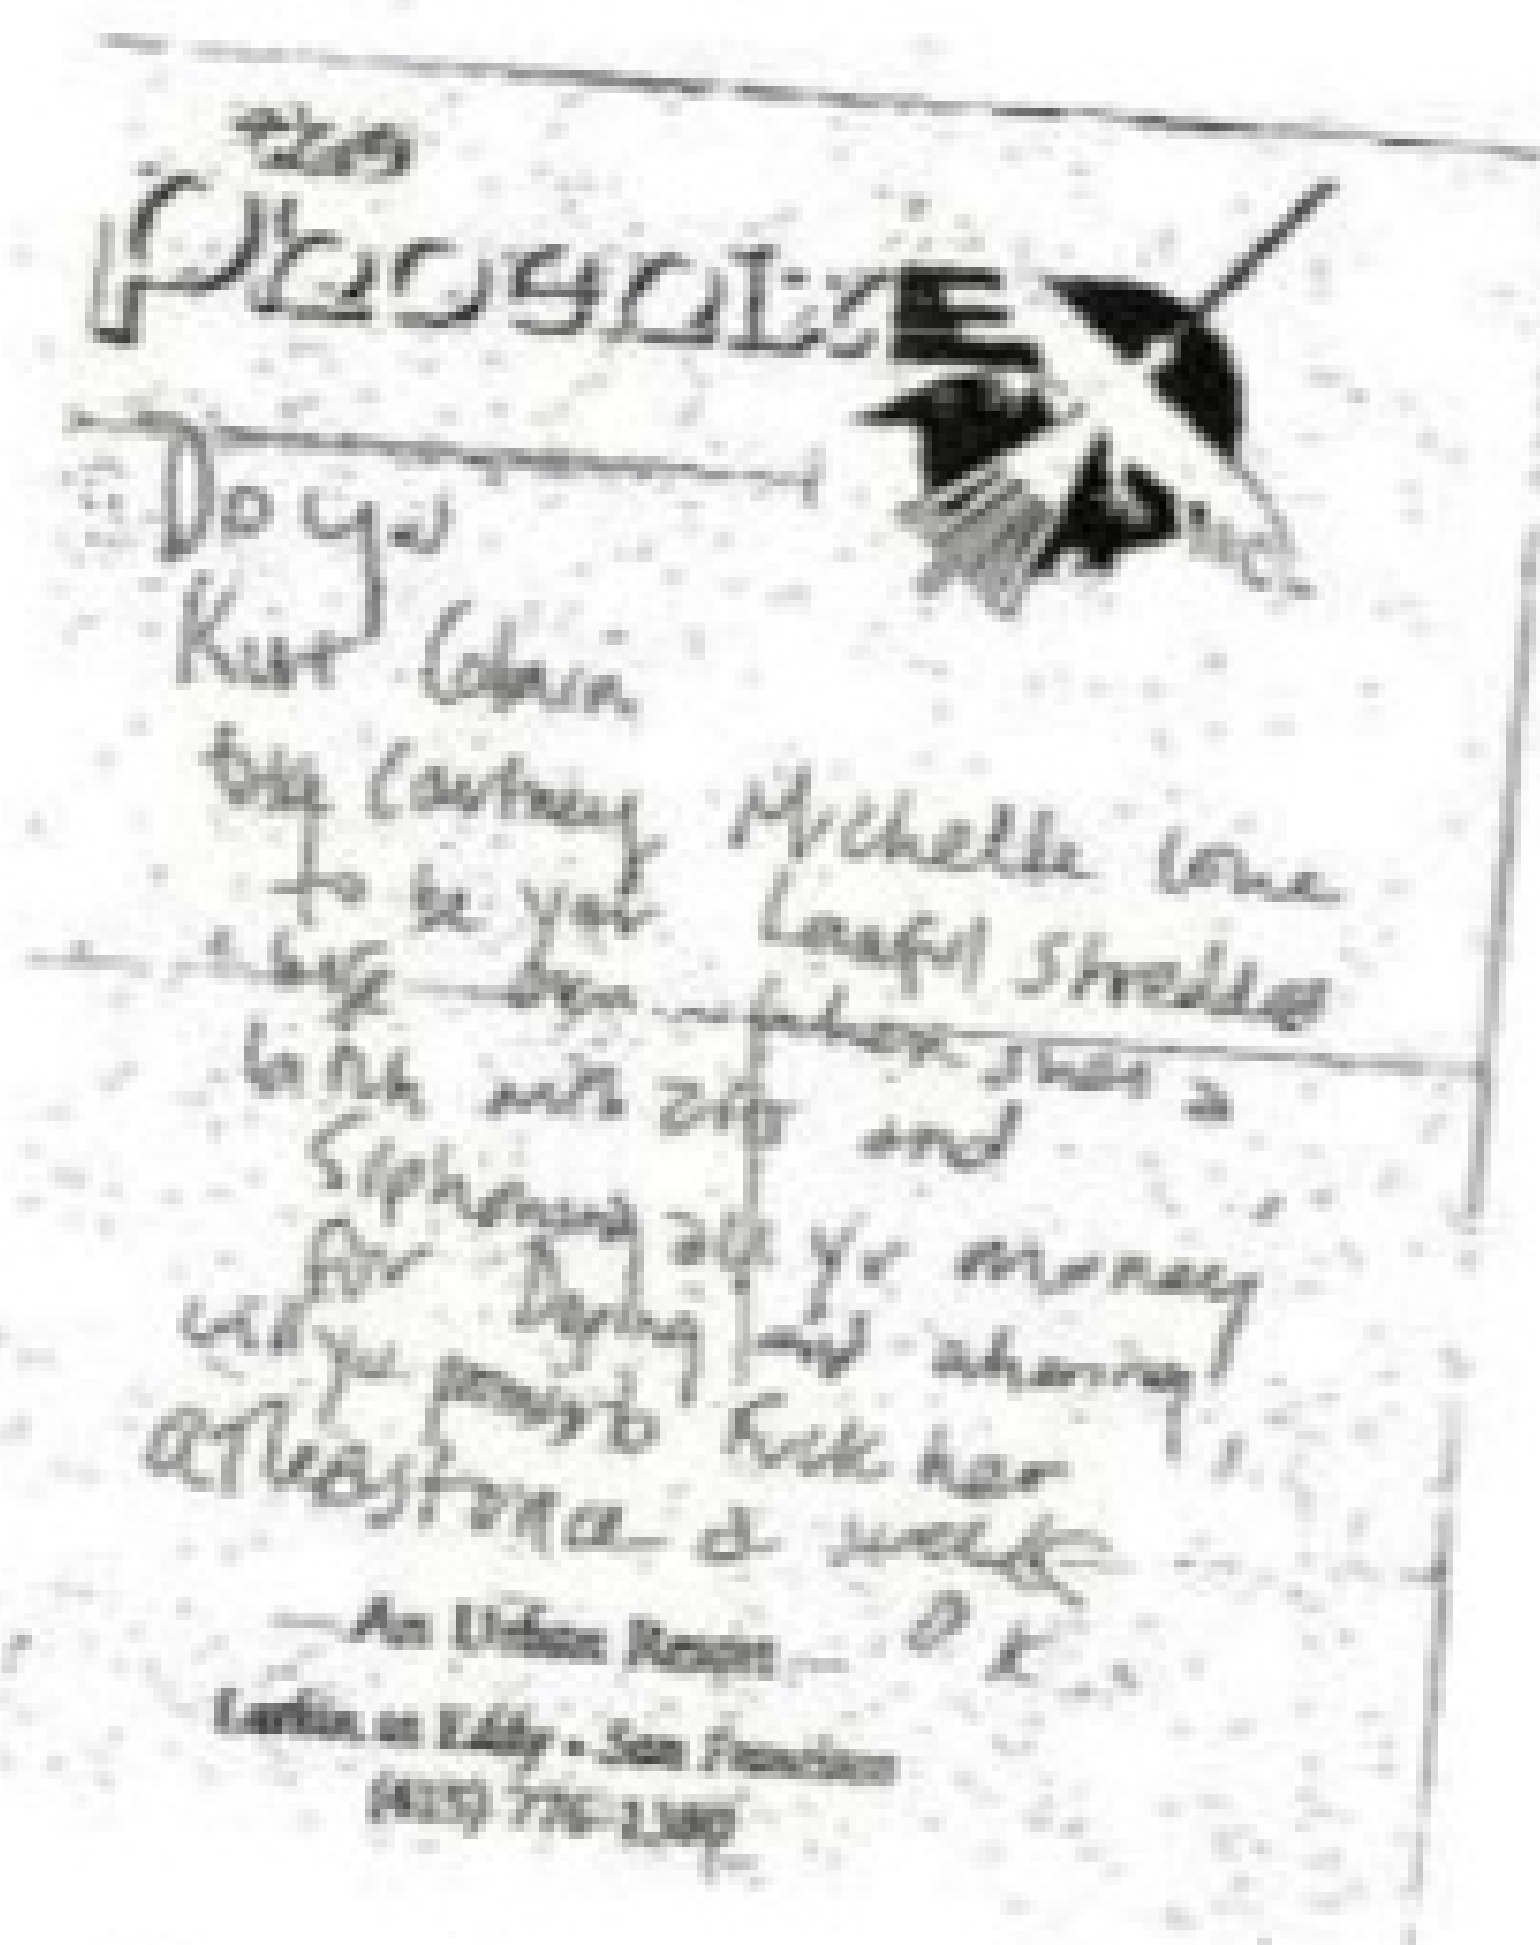 Phoenix
Inc.
Do you
Kurt Cobain
take Courtney Michelle Love
to be your Lawful Shredded
wife
bitch with zits and
Siphoning all yr money
for Doping and whoring
will you promise to Fuck her
at least once a week
O K..
An Urban Resort
Larkin at Eddy • San Francisco
(415) 776-1380